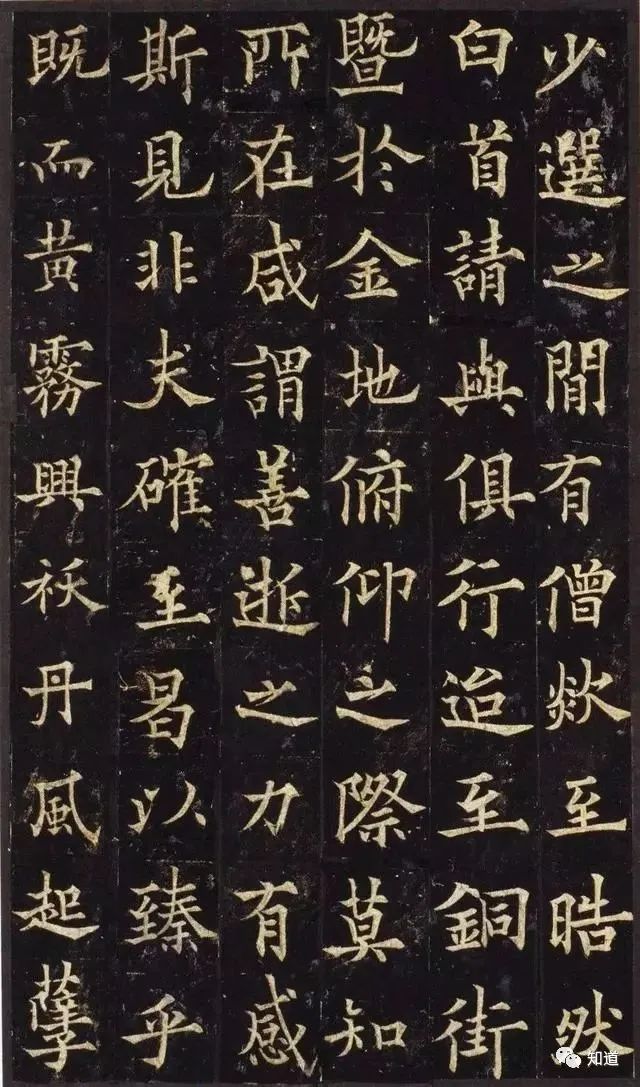 少選之間有僧欻至晧然
白首請與俱行迨至銅街
暨於金地俯仰之際莫知
所在咸謂善逝之力有感
斯見非夫確至曷以臻乎
既而黃霧興祅丹風起孽
知道